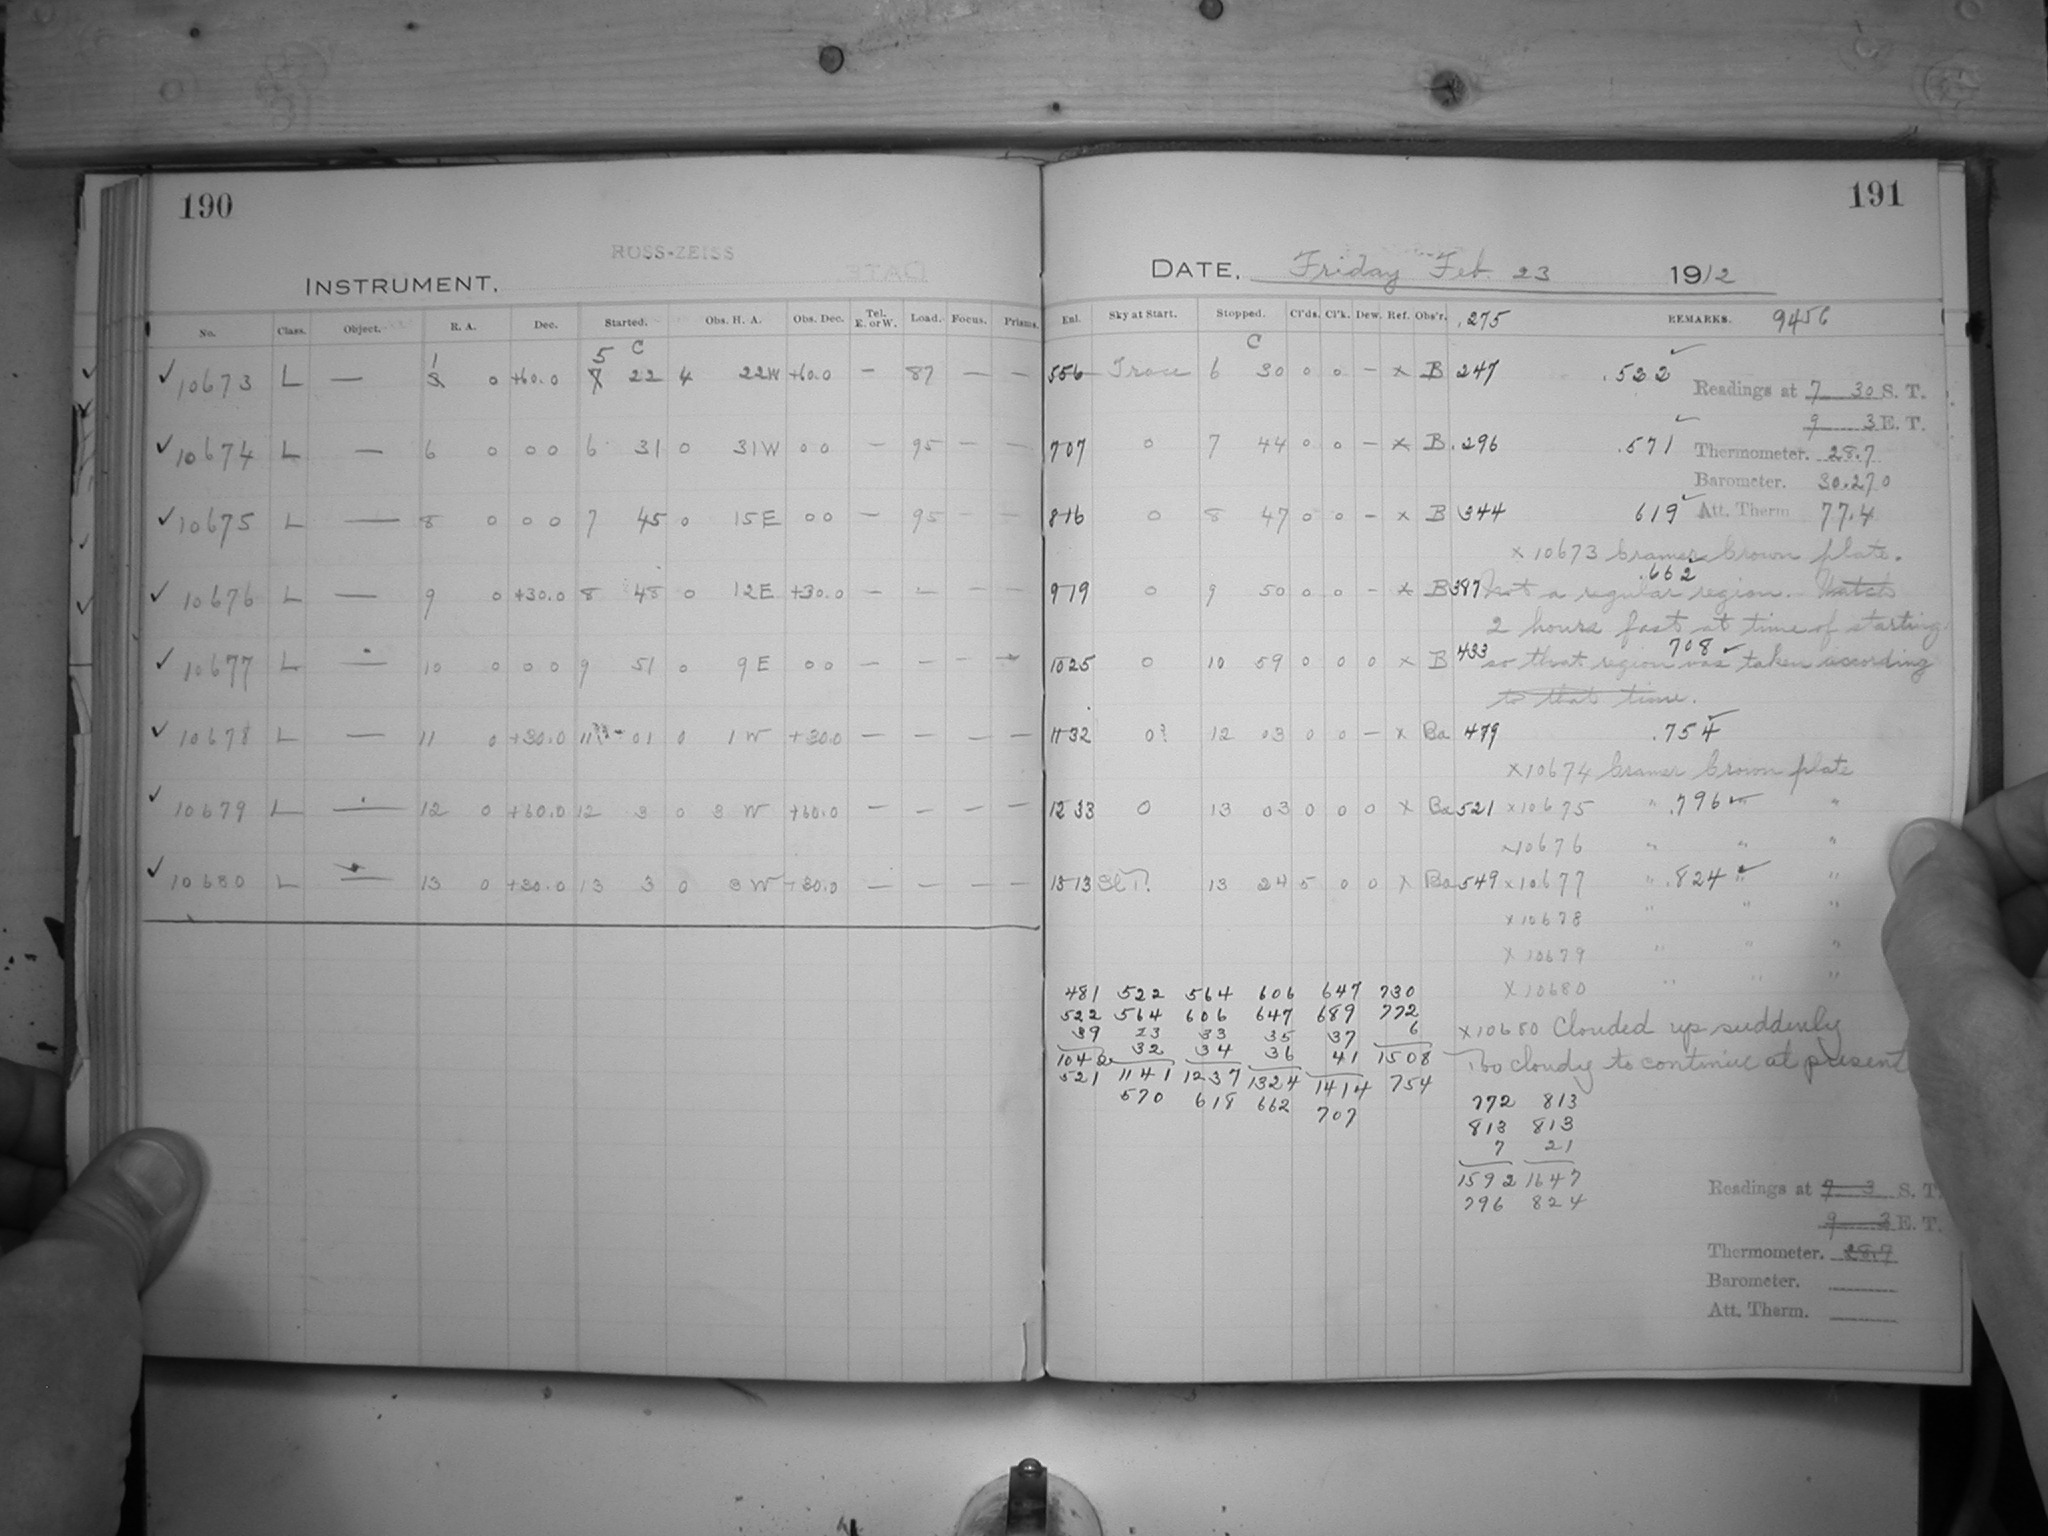 190
ROSS-ZEISS
INSTRUMENT.
No. Class. Object. R. A. Dec. Started. Obs. H. A. Obs. Dec. Tel. E. or W. Load. Focus. Prisms.
5 C
1
✓ 10673 L — 3 0 +60.0 7 22 4 22W +60.0 — 87 — —
✓ 10674 L — 6 0 0 0 6 31 0 31W 0 0 — 95 — —
✓ 10675 L — 8 0 0 0 7 45 0 15E 0 0 — 95 — —
✓ 10676 L — 9 0 +30.0 8 48 0 12E +30.0 — — — —
✓ 10677 L — 10 0 0 0 9 51 0 9E 0 0 — — — —
✓ 10678 L — 11 0 +30.0 11 01 0 1W +30.0 — — — —
✓ 10679 L — 12 0 +60.0 12 3 0 3 W +60.0 — — — —
✓ 10680 L — 13 0 +30.0 13 3 0 3 W +30.0 — — — —
191
DATE. Friday Feb. 23 1912
Enl. Sky at Start. Stopped. Cl'ds. Cl'k. Dew. Ref. Obs'r. .275 REMARKS. 9456
C
556 Trace 6 30 0 0 — x B 247 .522 ✓
Readings at 7 30 S. T.
9 3 E. T.
707 0 7 44 0 0 — x B .296 .571 ✓
Thermometer. 28.7
Barometer. 30.270
816 0 8 47 0 0 — x B 344 619 ✓ Att. Therm 77.4
x 10673 Cramer Crown plate.
.662
919 0 9 50 0 0 — x B 387 Not a regular region. Watch
2 hours fast at time of starting
1025 0 10 59 0 0 0 x B 433 708 ✓
so that region was taken according
to that time.
1132 0? 12 03 0 0 — x Ba 479 .754 ✓
x10674 Cramer Crown plate
1233 0 13 03 0 0 0 x Ba 521 x10675 " .796 ✓ "
x10676 " " "
1313 13 24 5 0 0 x Ba 549 x10677 " .824 ✓ " "
x10678 " " "
x 10679 " " "
x 10680 " " "
481 522 564 606 647 730
522 564 606 647 689 772
39 23 33 35 37 6
1042 32 34 36 41 1508
521 1141 1237 1324 1414 754
570 618 662 707
x10680 Clouded up suddenly
Too cloudy to continue at present
772 813
813 813
7 21
1592 1647
796 824
Readings at 7 3 S. T.
9 3 E. T.
Thermometer. 28.7
Barometer.
Att. Therm.